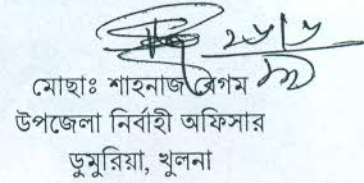 ২৮/৮
১৯
মোছাঃ শাহনাজ বেগম
উপজেলা নির্বাহী অফিসার
ডুমুরিয়া, খুলনা